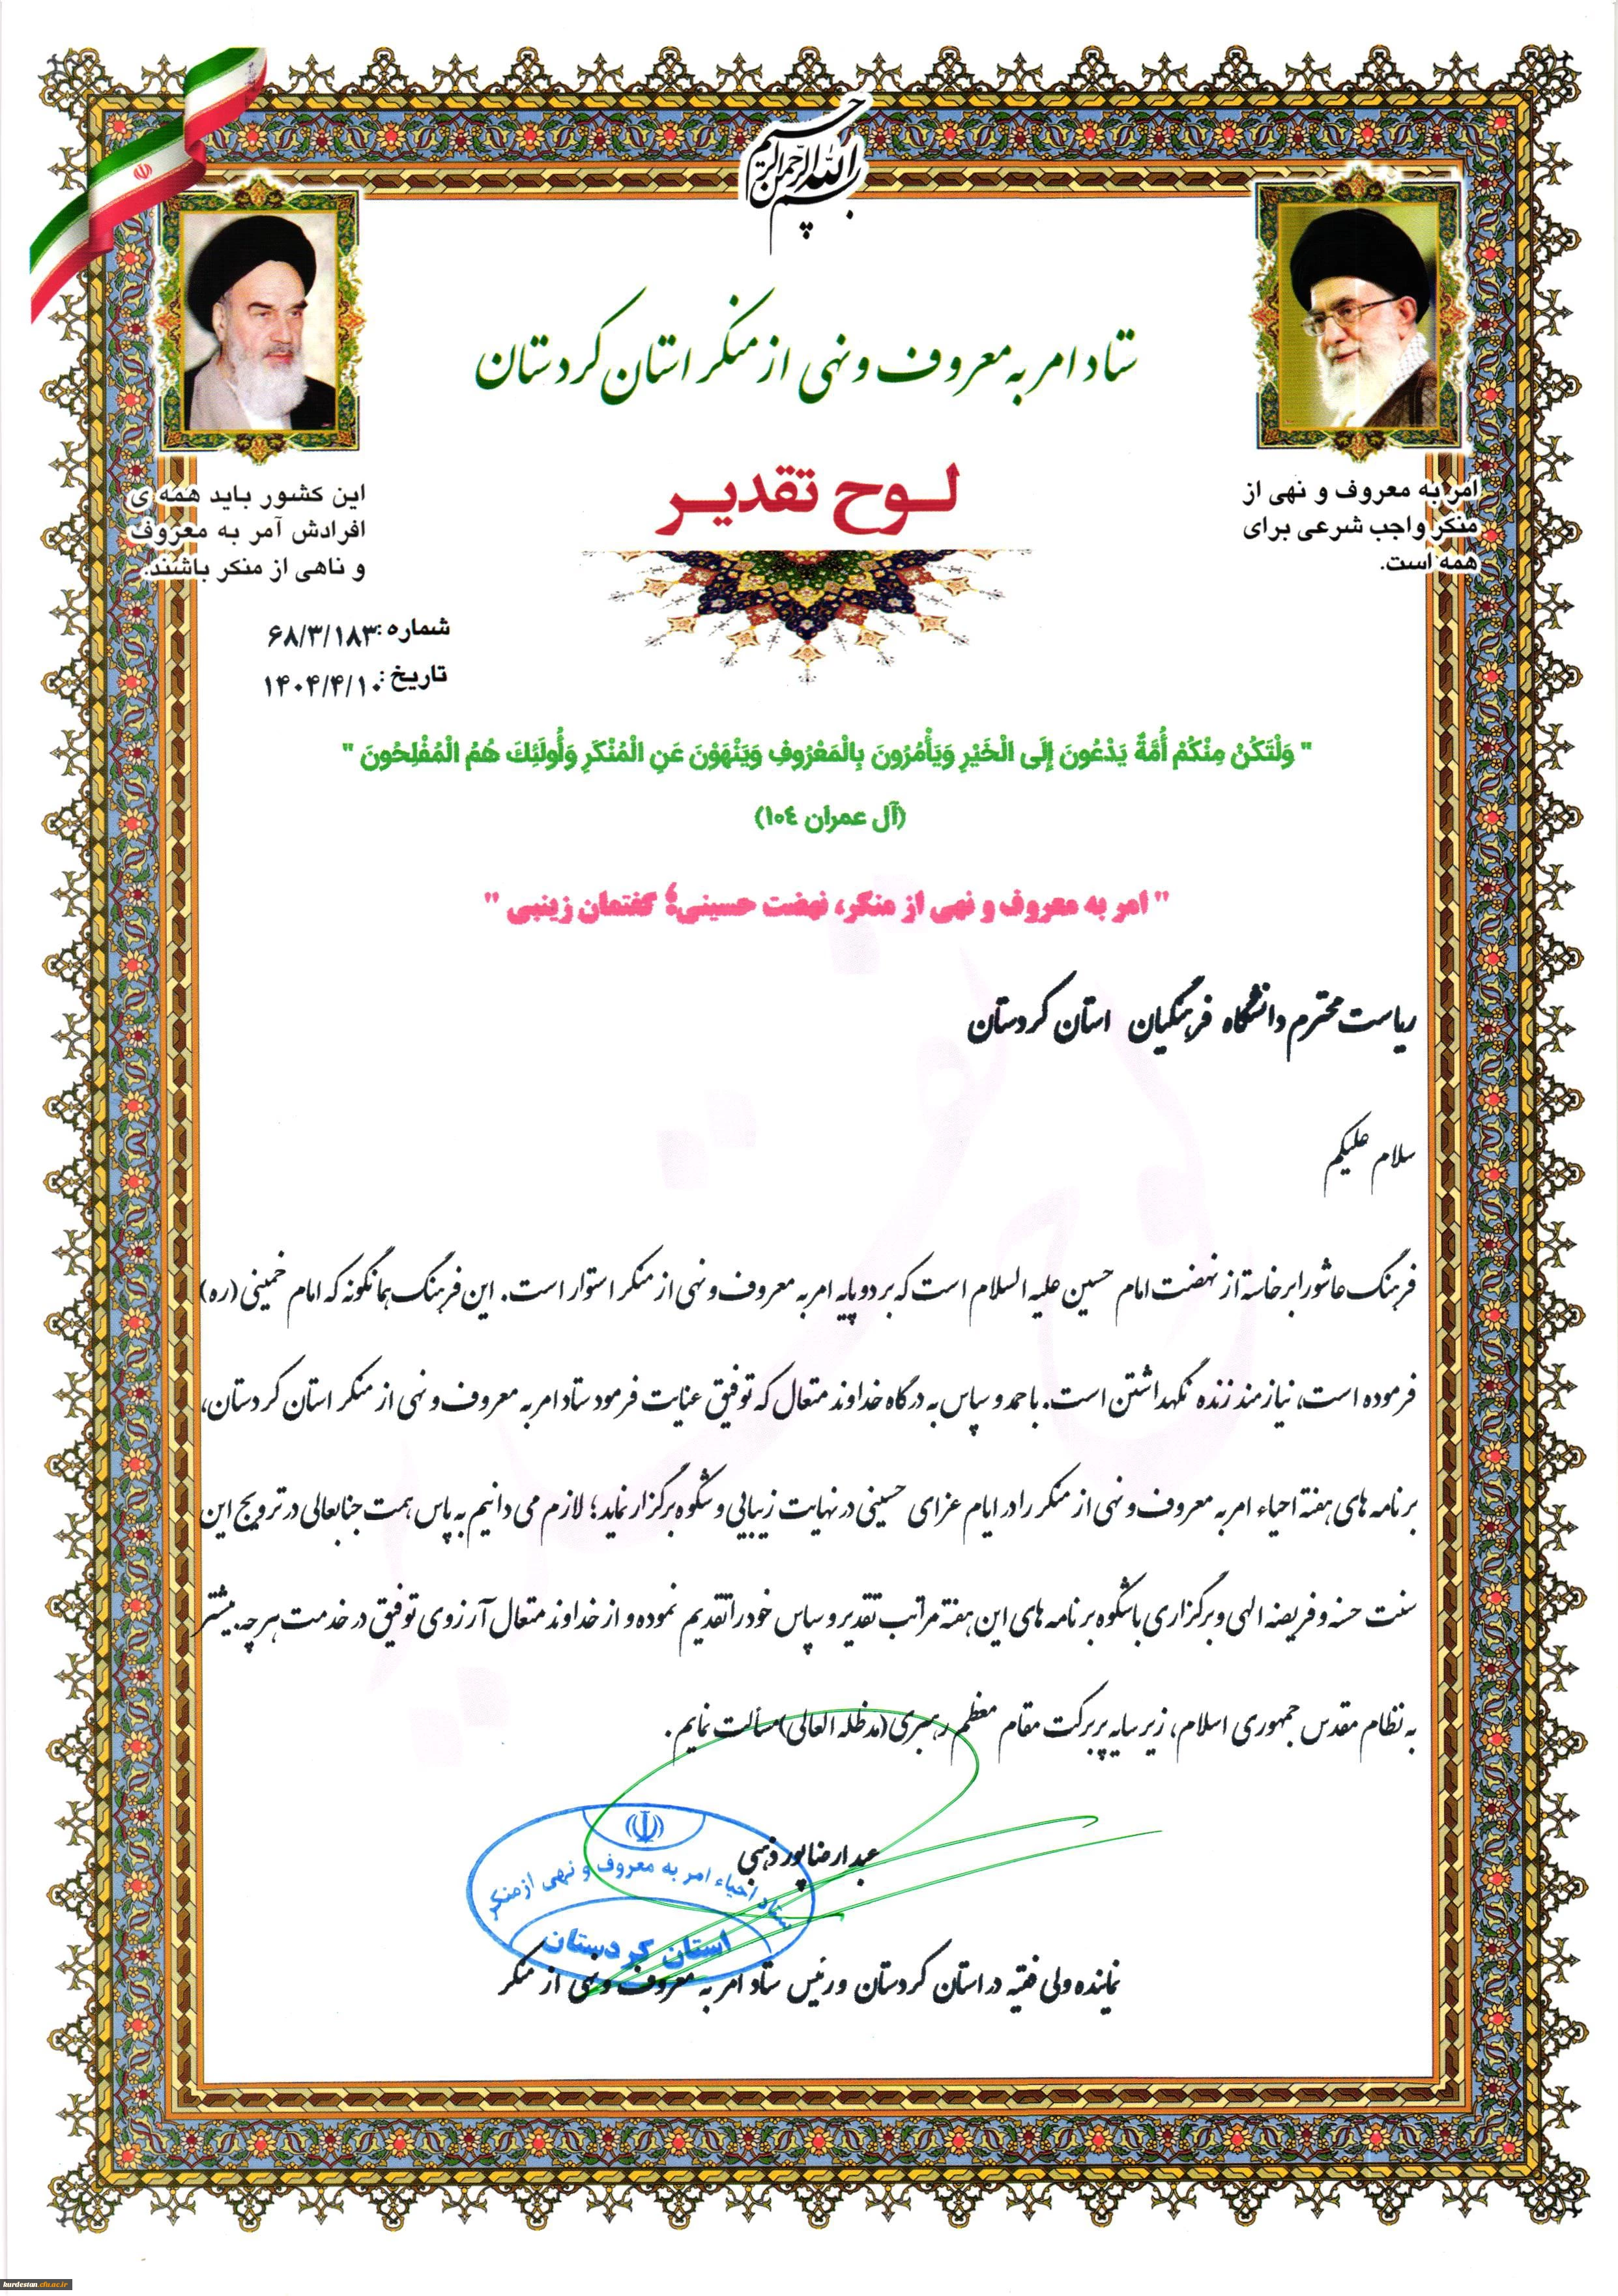 بسم الله الرحمن الرحیم
ستاد امر به معروف و نهی از منکر استان کردستان
لوح تقدیر
امر به معروف و نهی از
منکر واجب شرعی برای
همه است.
این کشور باید همه ی
افرادش آمر به معروف
و ناهی از منکر باشند.
شماره: ۶۸/۳/۱۸۳
تاریخ: ۱۴۰۴/۴/۱۰
" وَلْتَكُنْ مِنْكُمْ أُمَّةٌ يَدْعُونَ إِلَى الْخَيْرِ وَيَأْمُرُونَ بِالْمَعْرُوفِ وَيَنْهَوْنَ عَنِ الْمُنْكَرِ وَأُولَئِكَ هُمُ الْمُفْلِحُونَ "
(آل عمران ١٠٤)
" امر به معروف و نهی از منکر، نهضت حسینی؛ گفتمان زینبی "
ریاست محترم دانشگاه فرهنگیان استان کردستان
سلام علیکم
فرهنگ عاشورا برخاسته از نهضت امام حسین علیه السلام است که بر دو پایه امر به معروف و نهی از منکر استوار است. این فرهنگ همانگونه که امام خمینی (ره)
فرموده است، نیازمند زنده نگهداشتن است. با حمد و سپاس به درگاه خداوند متعال که توفیق عنایت فرمود ستاد امر به معروف و نهی از منکر استان کردستان،
برنامه های هفته احیاء امر به معروف و نهی از منکر را در ایام عزای حسینی در نهایت زیبایی و شکوه برگزار نماید؛ لازم می دانیم به پاس همت جنابعالی در ترویج این
سنت حسنه و فریضه الهی و برگزاری باشکوه برنامه های این هفته مراتب تقدیر و سپاس خود را تقدیم نموده و از خداوند متعال آرزوی توفیق در خدمت هر چه بیشتر
به نظام مقدس جمهوری اسلام، زیر سایه پر برکت مقام معظم رهبری (مدظله العالی) مسألت نمایم.
عبدارضا پورذهبی
ستاد احیاء امر به معروف و نهی از منکر
استان کردستان
نماینده ولی فقیه در استان کردستان و رئیس ستاد امر به معروف و نهی از منکر
kurdestan.cfu.ac.ir